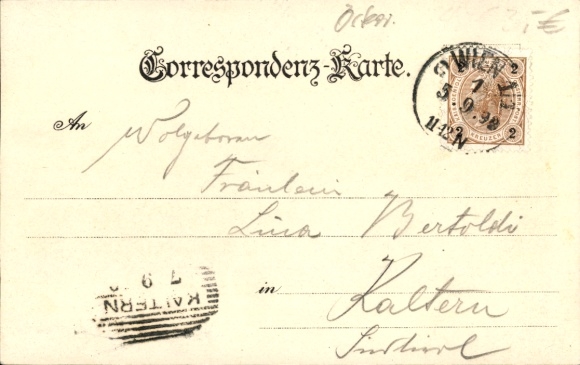 Öster.
€
Correspondenz-Karte.
WIEN 1/1
7
9.98
2
KREUZER
2
An Wolgeboren
Fräulein
Lina Bertoldi
in Kaltern
Südtirol
KALTERN
7 9